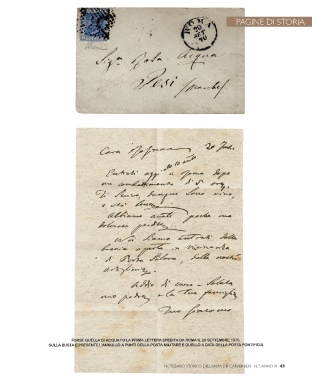 PAGINE DI STORIA
ROMA
20
SET
70
Sig.ra Rosa Acqua
Jesi
Marche
Cara Mamma 20 Sbre
Entrati oggi a Roma dopo
un
Ti scrivo, dunque sono vivo,
e sei
Abbiamo avuto poche ma
dolorose perdite
Noi siamo entrati dalla
breccia aperta in vicinanza
di Porta Salara, dalla nostra
artiglieria.
Addio di cuore - Saluta
mio padre, e la tua famiglia
Tuo Giacomo
FORSE QUELLA DI ACQUA FU LA PRIMA LETTERA SPEDITA DA ROMA IL 20 SETTEMBRE 1870.
SULLA BUSTA È PRESENTE L'ANNULLO A PUNTI DELLA POSTA MILITARE E QUELLO A DATA DELLA POSTA PONTIFICIA
NOTIZIARIO STORICO DELL'ARMA DEI CARABINIERI - N. 5 ANNO III 43